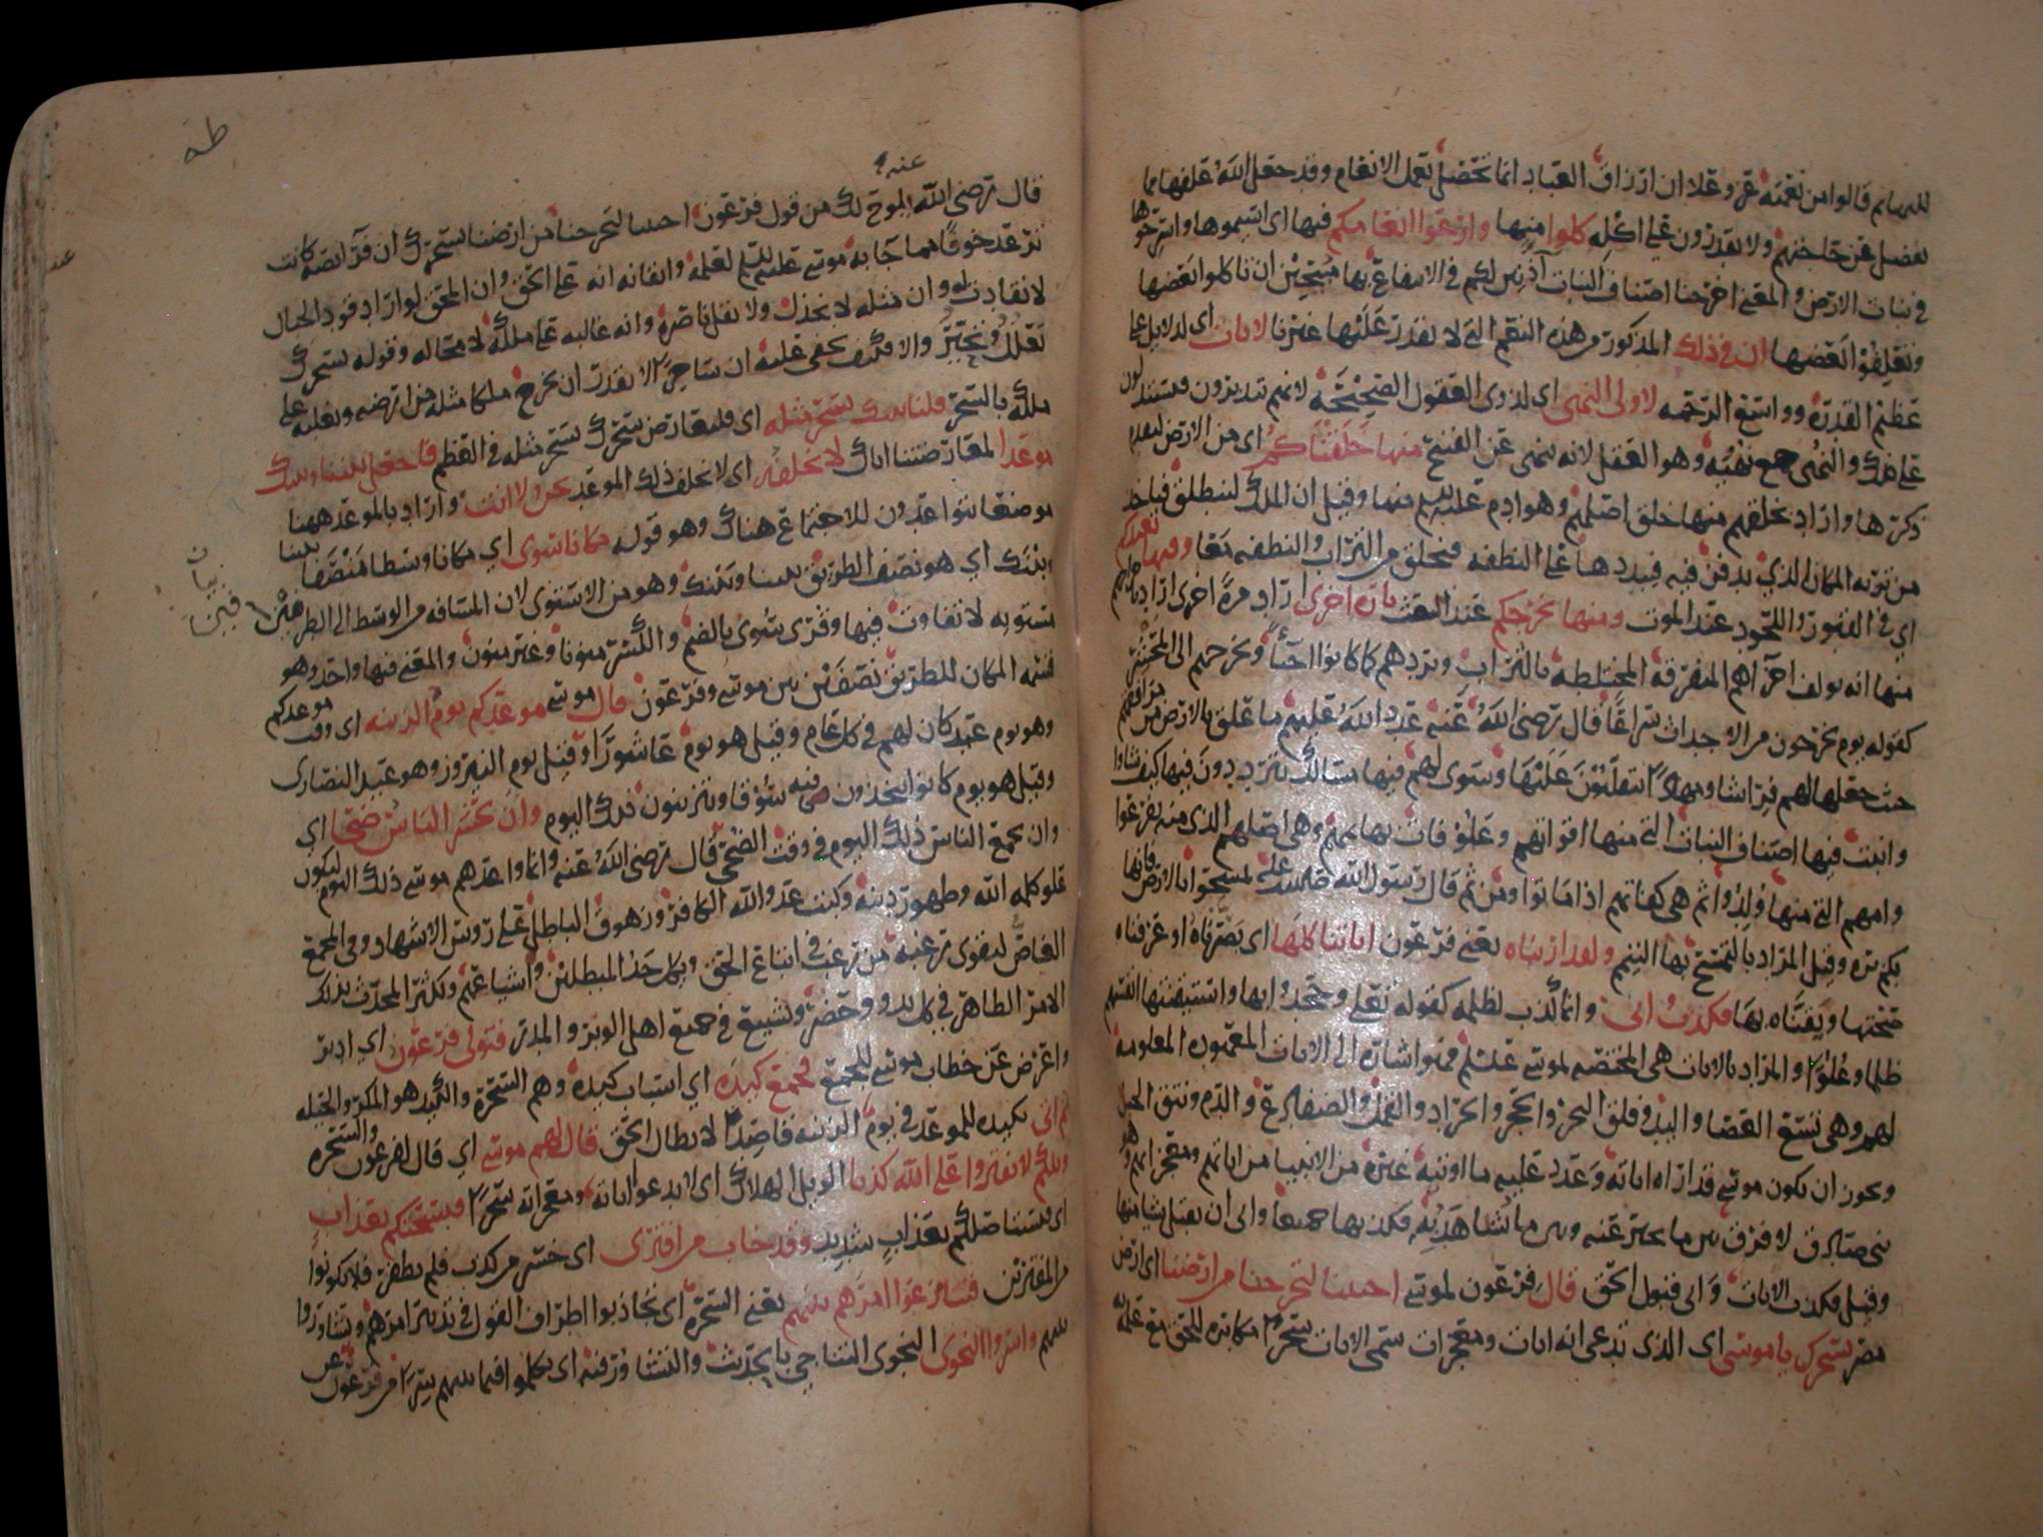 للبهايم قالوا من نعمته عز وعلا ان ارزاق العباد انما تحصل بعمل الانعام وقد جعل الله علفها مما
يفضل عن حاجتهم ولا يقدرون على اكله كلوا منها وارعوا انعامكم فيها اي اسيموها واسرحوها
في نبات الارض والمعنى اخرجنا اصناف النبات آذنين لكم في الانتفاع بها مبيحين ان تاكلوا بعضها
وتعلفوا بعضها ان في ذلك المذكور من هذه النعم التي لا يقدر عليها غيرنا لايات اي لدلايل على
عظيم القدرة وواسع الرحمه لاولي النهى اي لذوي العقول الصحيحة لانهم يتدبرون فيستدلون
على ذلك والنهى جمع نهيه وهو العقل لانه ينهى عن القبيح منها خلقناكم اي من الارض لتقدم
ذكرها واراد بخلقهم منها خلق اصلهم وهو ادم عليه السلم منها وقيل ان الملك لينطلق فياخذ
من تربه المكان الذي يدفن فيه فيبددها على النطفه فيخلق من التراب والنطفه معا وفيها نعيدكم
اي في القبور واللحود عند الموت ومنها نخرجكم عند البعث تارة اخرى اراد مرة اخرى اراد باخراجهم
منها انه يولف اجزاهم المتفرقة المختلطة بالتراب ويردهم كما كانوا احيآ ويخرجهم الى المحشر
كقوله يوم يخرجون من الاجداث سراعا قال رضي الله عنه عدد الله عليهم ما علق بالارض من مرافقهم
حيث جعلها لهم فراشا ومهادا يتقلبون عليها وسوى لهم فيها مسالك يترددون فيها كيف شاوا
وانبت فيها اصناف النبات التي منها اقواتهم وعلوفات بهايمهم وهي اصلهم الذي منه تفرعوا
وامهم التي منها ولدوا ثم هي كفاتهم اذا ماتوا ومن ثم قال رسول الله صلى الله عليه تمسحوا بالارض فانها
بكم بره وقيل المراد بالتمسح بها التيمم ولقد اريناه يعني فرعون اياتنا كلها اي بصرناه او عرفناه
صحتها ويقناه بها فكذب وابى وانما كذب لظلمه كقوله تعلى وجحدوا بها واستيقنتها انفسهم
ظلما وعلوا والمراد بالايات هي المختصه لموسى علسلم فهو اشارة الى الايات المعهوده المعلومه
لهم وهي تسع العصا واليد وفلق البحر والحجر والجراد والقمل والضفادع والدم ونتق الجبل
ويجوز ان يكون موسى قد اراه اياته وعدد عليه ما اوتيه غيره من الانبيا من اياتهم ومعجزاتهم وهو
نبي صادق لا فرق بين ما يخبر عنه وبين ما يشاهد به فكذب بها جميعا وابى ان يقبل شيا منها
وقيل فكذب الايات وابى قبول الحق قال فرعون لموسى اجئتنا لتخرجنا من ارضنا اي ارض
مصر بسحرك يا موسى اي الذي تدعي انه ايات ومعجزات سمى الايات سحرا مكابره للحق مع علمه
طه
قال رضي الله عنه يلوح لك من قول فرعون اجئتنا لتخرجنا من ارضنا بسحرك ان فرائصه كانت
ترعد خوفا مما جا به موسى عليه السلم لعلمه وايقانه انه على الحق وان المحق لو اراد قود الجبال
لانقادت له وان مثله لا يخذل ولا يقل ناصره وانه غالبه على ملكه لا محاله وقوله بسحرك
تعلل وتحير والا فكيف يخفى عليه ان ساحرا لا يقدر ان يخرج ملكا مثله من ارضه ويغلبه على
ملكه بالسحر فلناتينك بسحر مثله اي فليعارض سحرك سحر مثله في العظم فاجعل بيننا وبينك
موعدا لمعارضتنا اياك لا نخلفه اي لا نخلف ذلك الموعد نحن ولا انت واراد بالموعد ههنا
موضعا يتواعدون للاجتماع هناك وهو قوله مكانا سوى اي مكانا وسطا منصفا بيننا
وبينك اي هو نصف الطريق بيننا وبينك وهو من الاستوى لان المسافه من الوسط الى الطرفين
مستويه لا تفاوت فيها وقرى سوى بالضم والكسر منونا وغير منون والمعنى فيها واحد وهو
قسمه المكان للطريق نصفين بين موسى وفرعون قال موسى موعدكم يوم الزينه اي وقت موعدكم
وهو يوم عيد كان لهم في كل عام وقيل هو يوم عاشورا وقيل يوم النيروز وهو عيد النصارى
وقيل هو يوم كانوا يتخذون فيه سوقا ويتزينون ذلك اليوم وان يحشر الناس ضحى اي
وان يجمع الناس ذلك اليوم في وقت الضحى قال رضي الله عنه وانما واعدهم موسى ذلك اليوم ليكون
علو كلمه الله وظهور دينه وكبت عدو الله الكافر وزهوق الباطل على روس الاشهاد وفي المجمع
الغاص لتقوى رغبة من رغب في اتباع الحق ويكل حد المبطلين واشياعهم ويكثر المحدث بذلك
الامر الظاهر في كل بدو وحضر ويشيع في جميع اهل الوبر والمدر فتولى فرعون اي ادبر
واعرض عن خطاب موسى للجمع فجمع كيده اي اسباب كيده وهم السحرة والكيد هو المكر والحيله
ثم اتى بكيده للموعد في يوم الزينه قاصدا لابطال الحق قال لهم موسى اي قال لفرعون والسحره
ويلكم لا تفتروا على الله كذبا الويل الهلاك اي لا تدعوا اياته ومعجزاته سحرا فيسحتكم بعذاب
اي فيستاصلكم بعذاب شديد وقد خاب من افترى اي خسر من كذب فلم يظفر فلا تكونوا
من المفترين فتنازعوا امرهم بينهم يعني السحرة اي تجاذبوا اطراف القول في تدبير امرهم وتشاوروا
بينهم واسروا النجوى النجوى التناجي بالحديث والتشاور فيه اي تكلموا فيما بينهم سرا من فرعون